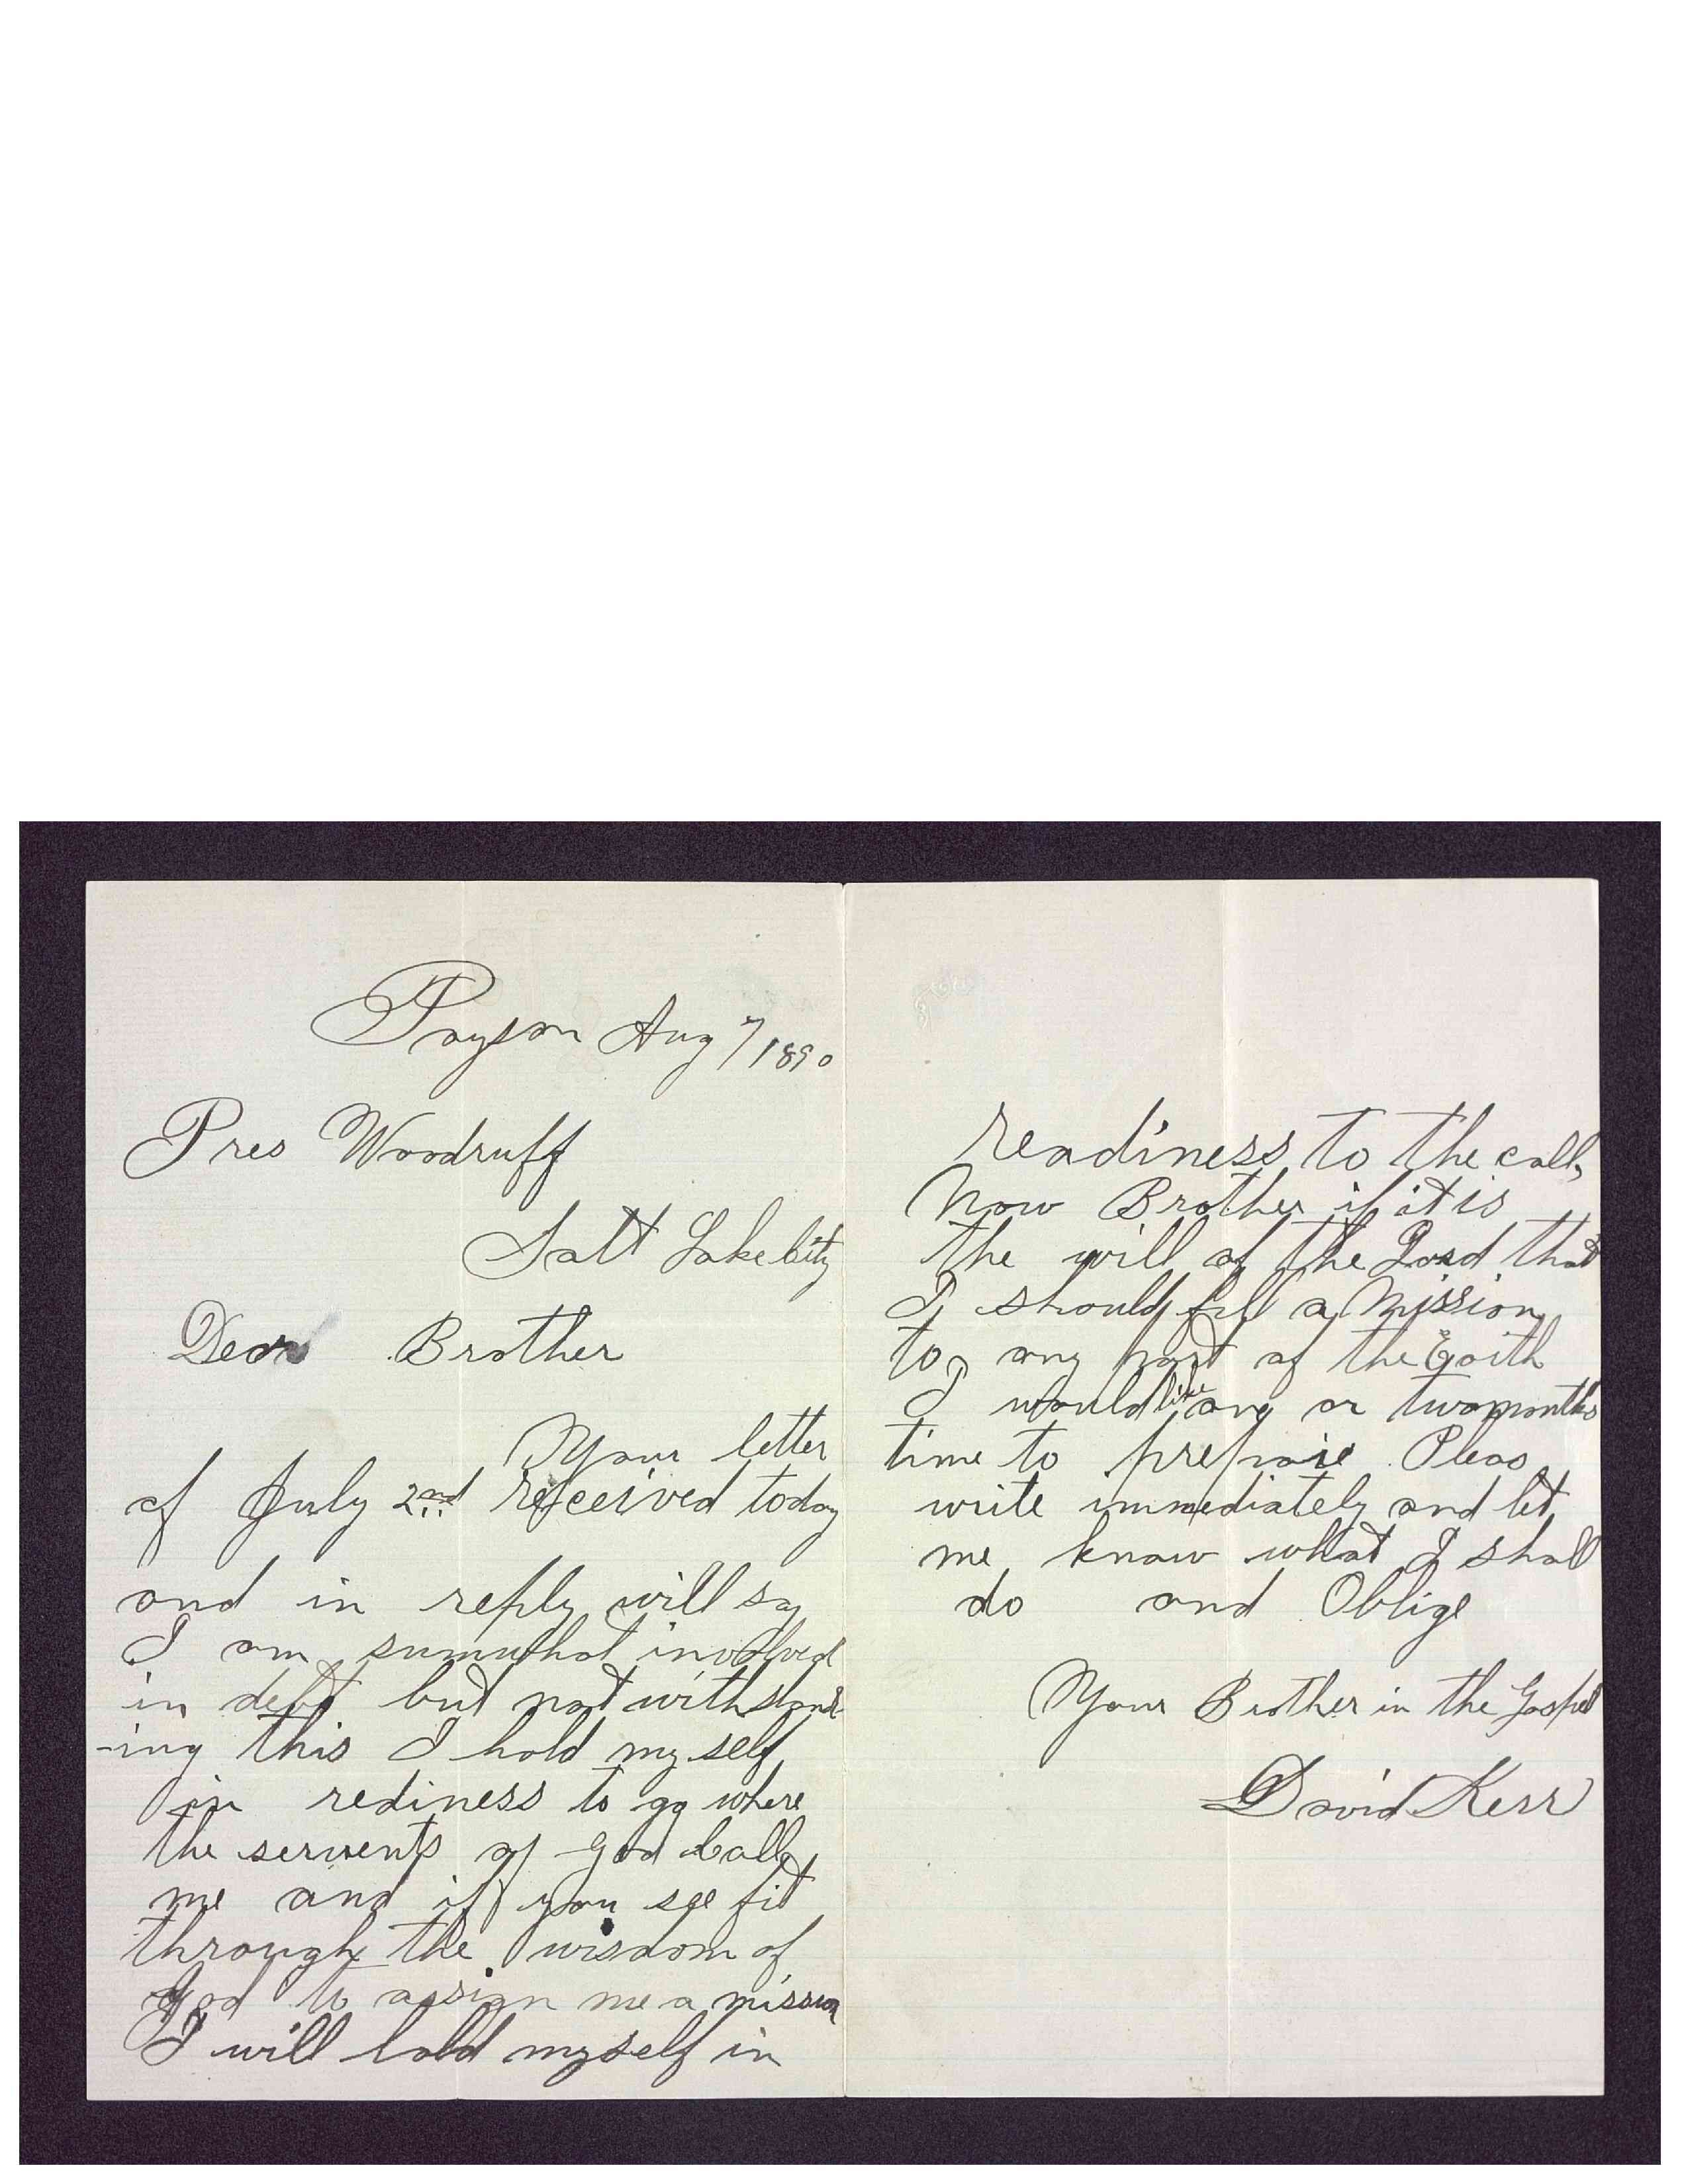 Payson Aug 7 1890
Pres Woodruff
Salt Lake City
Dear Brother
Your letter
of July 2nd received today
and in reply will say
I am sumwhat involved
in debt but notwithstand-
-ing this I hold my self
in rediness to go where
the servents of God Call
me and if you see fit
through the wisdom of
God to assign me a mission
I will hold myself in
readiness to the call,
Now Brother if it is
the will of the Lord that
I should fill a Mission
to any part of the Earth
I would like or two months
time to prepare Pleas
write immediately and let
me know what I shall
do and Oblige
Your Brother in the Gospel
David Kerr